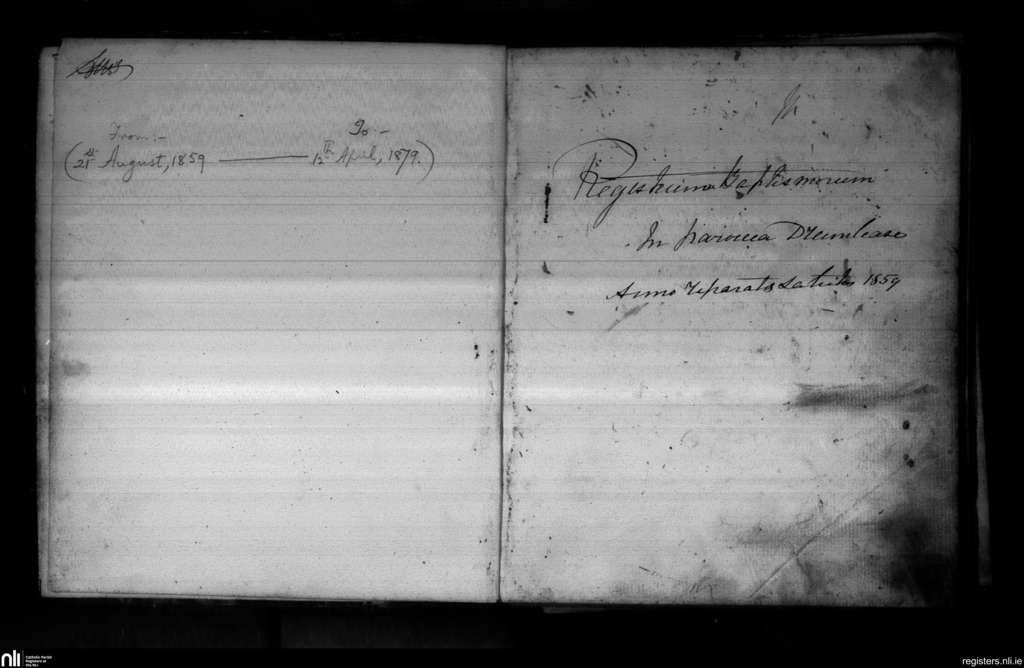 From:- To:-
(21st August, 1859 — 12th April, 1879.)
In
Registrum Baptismorum
In parocia Drumlease
Anno reparatæ Salutis 1859
nli
Catholic Parish
Registers at
the NLI
registers.nli.ie